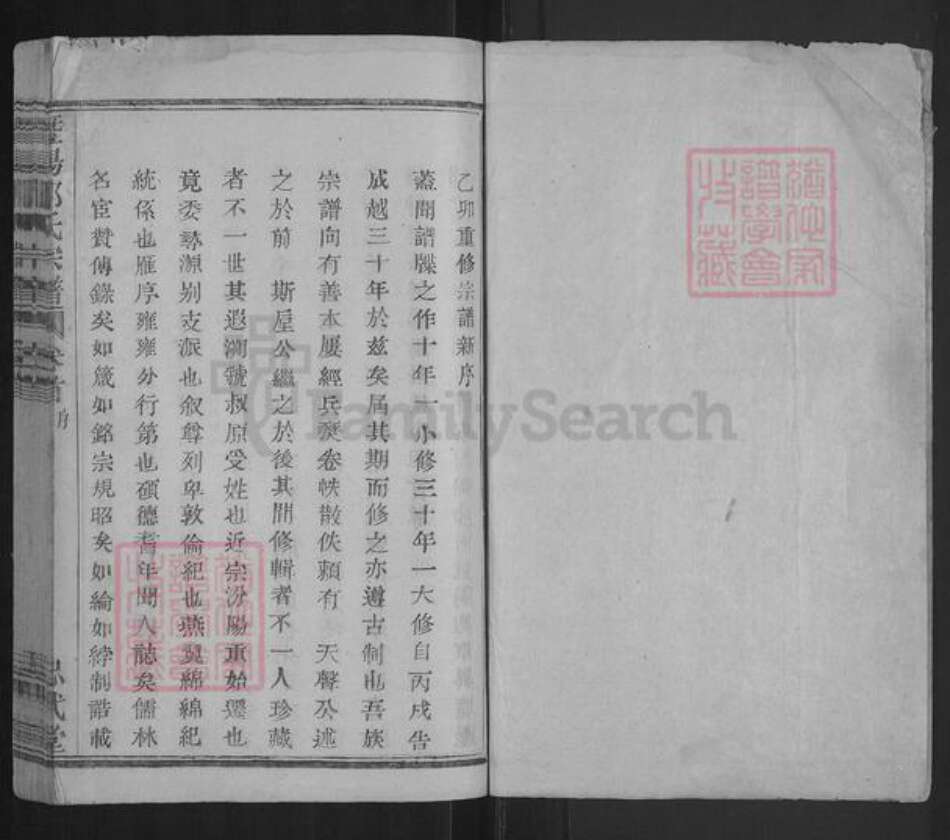 乙卯重修宗譜新序
蓋聞譜牒之作十年一小修三十年一大修自丙戌告
成越三十年於茲矣届其期而修之亦遵古制也吾族
宗譜向有善本屢經兵燹卷帙散佚賴有 天聲公述
之於前 斯屋公繼之於後其間修輯者不一人珍藏
者不一世其遐溯虢叔原受姓也近宗汾陽重始遷也
竟委尋源别支派也叙尊列卑敦倫紀也燕翼綿綿紀
統係也雁序雍雍分行第也碩德耆年聞人誌矣儒林
名宦贊傳錄矣如箴如銘宗規昭矣如綸如綍制誥載
氏宗譜 卷首 序
忠武堂
猶他家
譜學會
收藏
FamilySearch